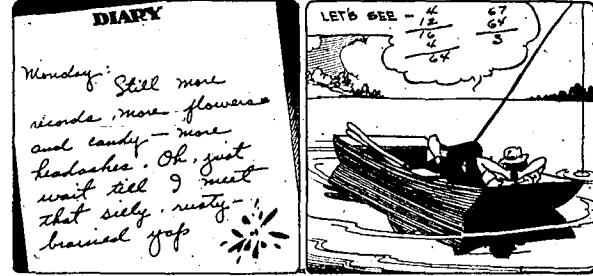 DIARY
Monday:
Still more
records, more flowers
and candy — more
headaches. Oh, just
wait till I meet
that silly, rusty-
brained yap
LET'S SEE — 4 67
12 64
16 3
4
64